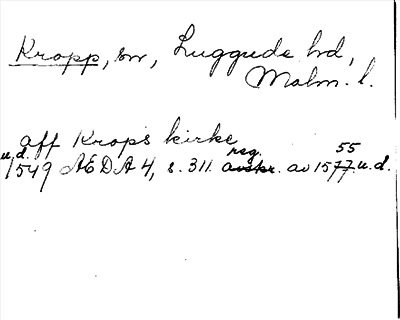 Kropp, sn, Luggude hd,
Malm. l.
aff Krops kirke
u.d. reg. 55
1549 AEDA 4, s. 311. avskr. av 1577 u.d.